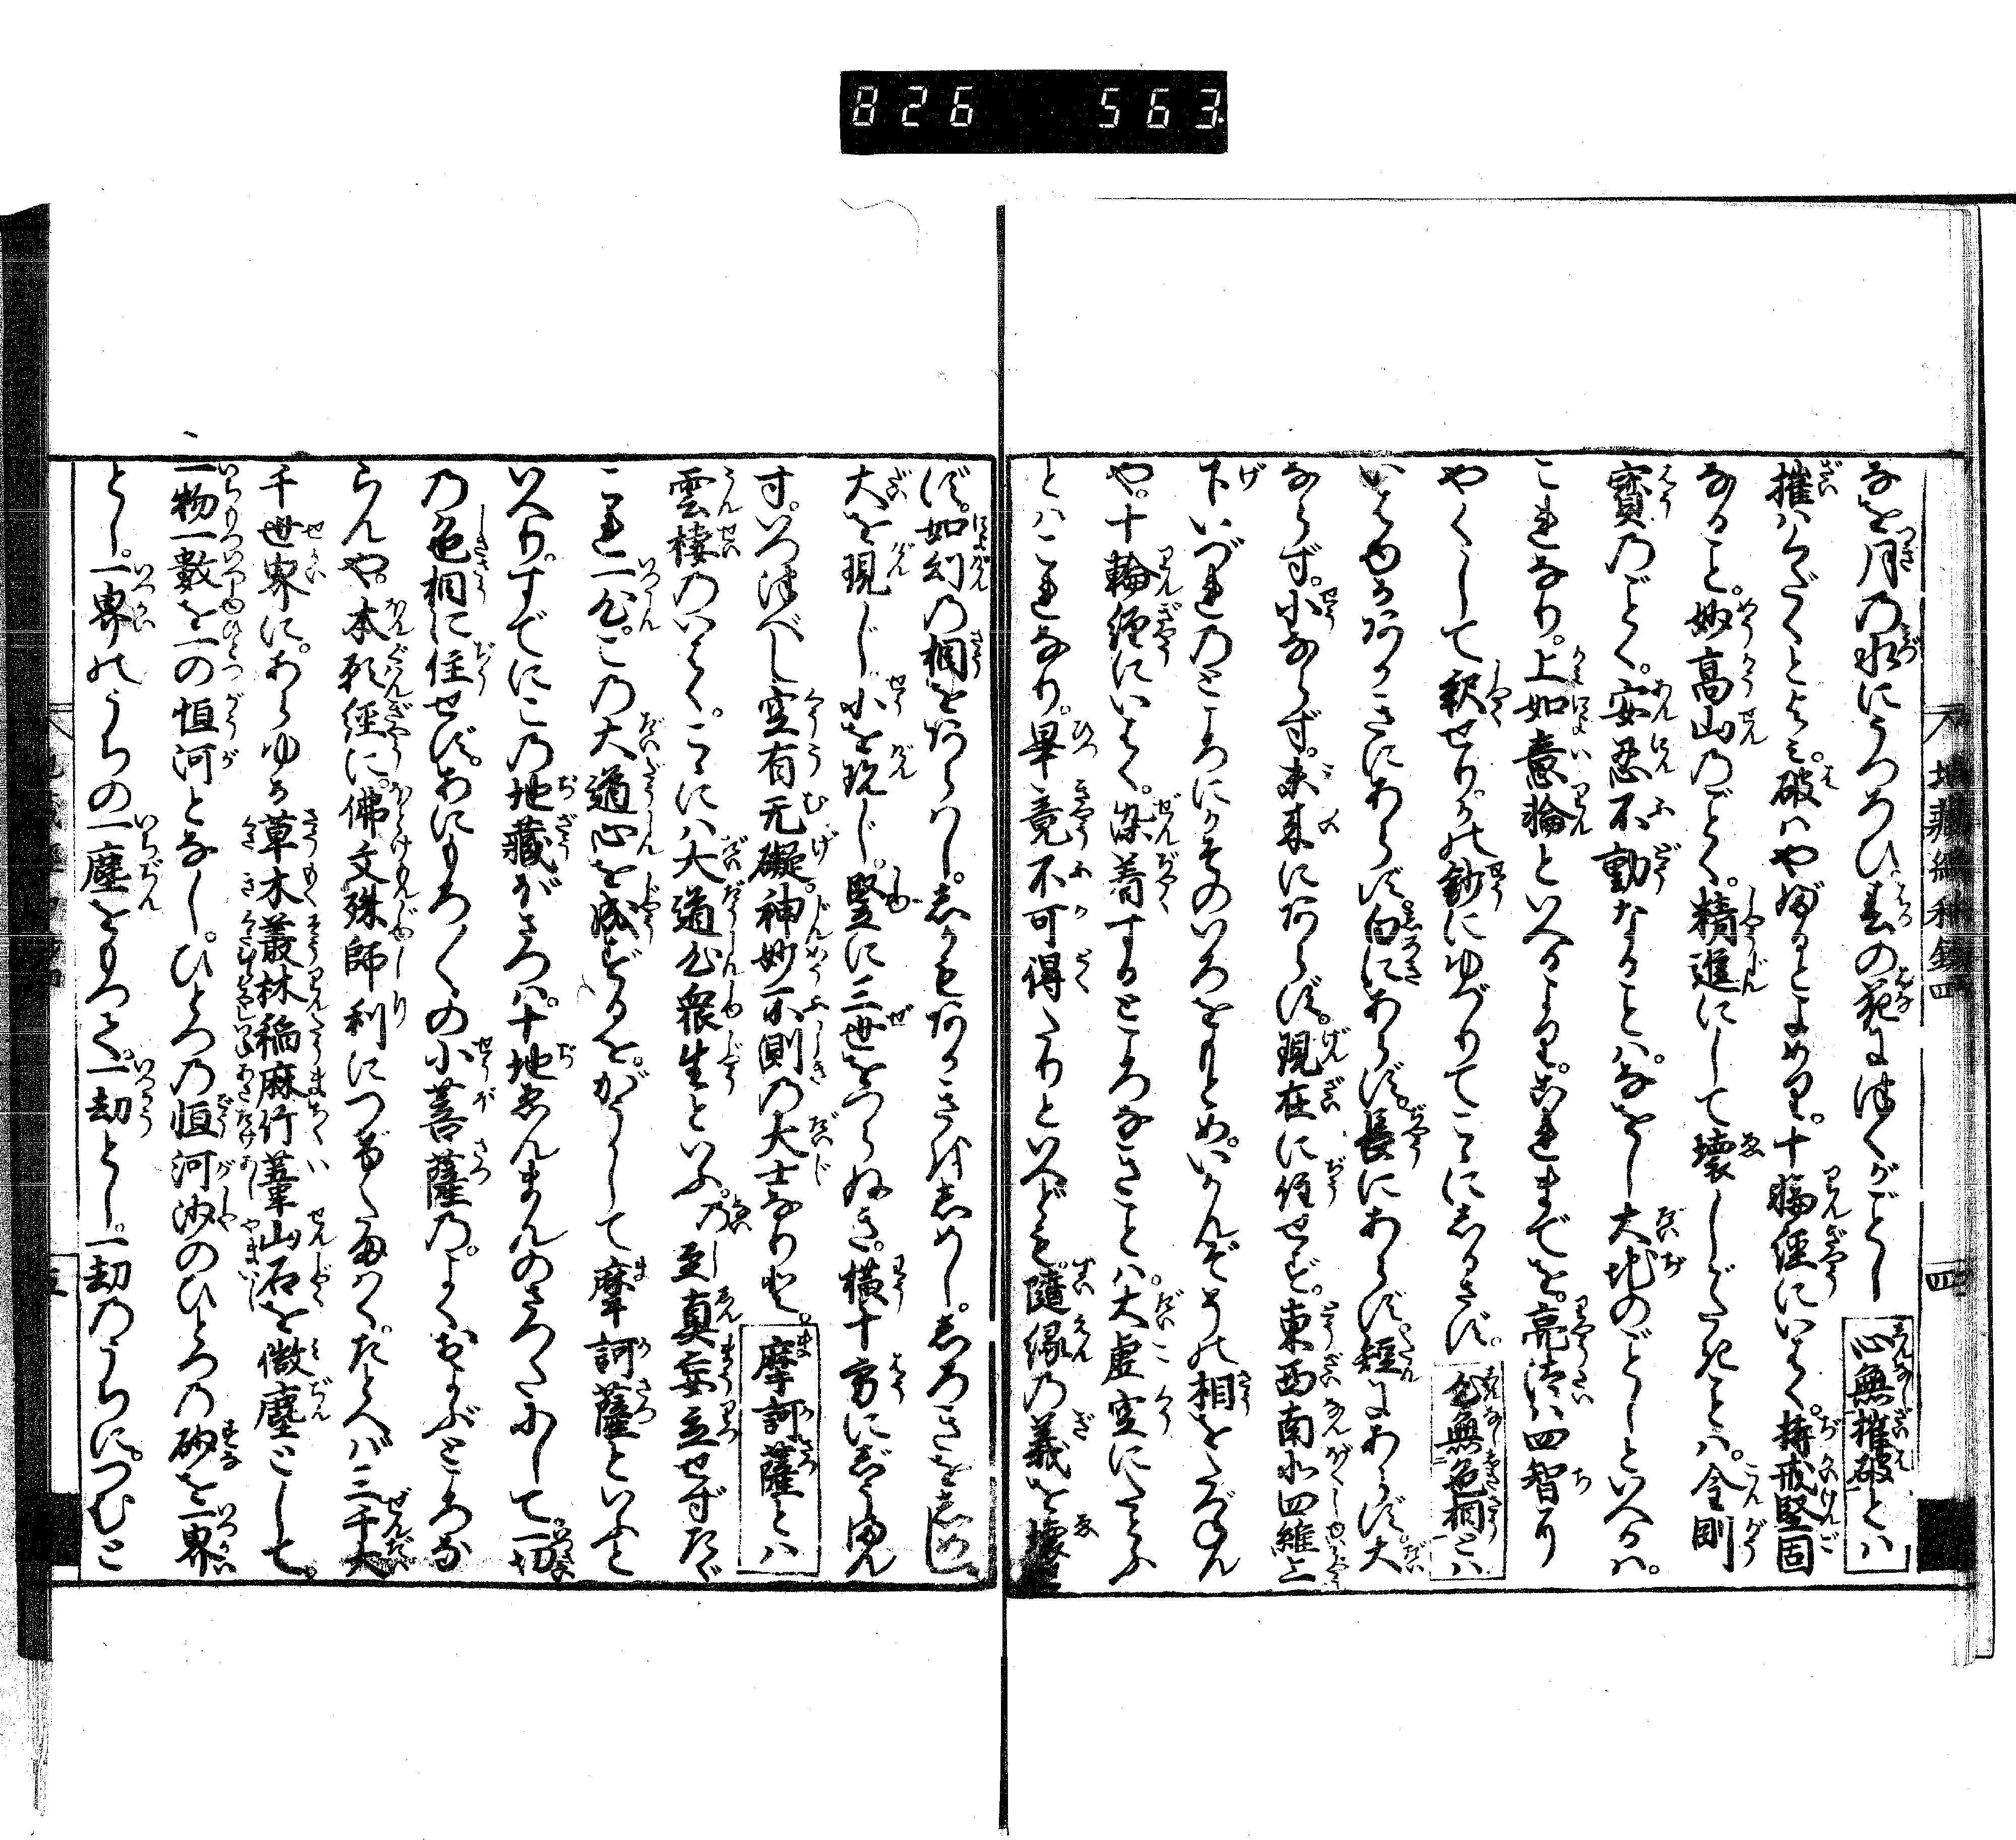 826 563
なを月乃水にうつろひ春の花にほくがごとし 心無摧破とハ
摧ハくだくとよミ破ハやぶるとよめり。十輪経にいはく。持戒堅固
なること。妙高山乃ごとく。精進にして壊しがたきことハ。金剛
寳乃ごとく。安忍不動なることハ。なをし大地のごとしといへるハ。
これなり。上如意輪といへるより。これまでを。亮汰ハ四智り
やくして釈せり。かの鈔にゆづりてこゝにしるさず。色無色相とハ
いはゆるあかきにあらず。白にあらず。長にあらず。短にあらず。大
ならず。小ならず。未来にあらず。現在に住せず。東西南北四維上
下いづれのところにかそのいろをもとめ。いかんぞその相をたづねん
や。十輪経にいはく。染着するところなきことハ。大虚空にたとふ
とハこれなり。畢竟不可得なりといへども。隨縁乃義を壊せ
ず。如幻乃相をあらハし。あかきをしめし。しろきをしめし。
大を現じ小を現じ。竪に三世をつらぬき。横十方にじうまん
す。いつつべし空有无礙。神妙不測の大士なりと。 摩訶薩とハ
雲棲のいはく。こゝにハ大道心衆生といふ。乃至真妄立せずたゞ
これ一心。この大道心を成ずるを。がうして摩訶薩といふと
いへり。すでにこの地藏ぼさつハ。十地ゑんまんのさつたにして。一切
乃色相に住せず。あにもろ〱の小菩薩の。よくおよぶところな
らんや。本願経に。佛文殊師利につげたまはく。たとへバ三千大
千世界に。あらゆる草木叢林稲麻竹葦山石を微塵として。
一物一數を一の恒河となし。ひとつの恒河沙のひとつの砂を一界
とし。一界のうちの一塵をもつて。一劫とし。一劫のうちに。つむと